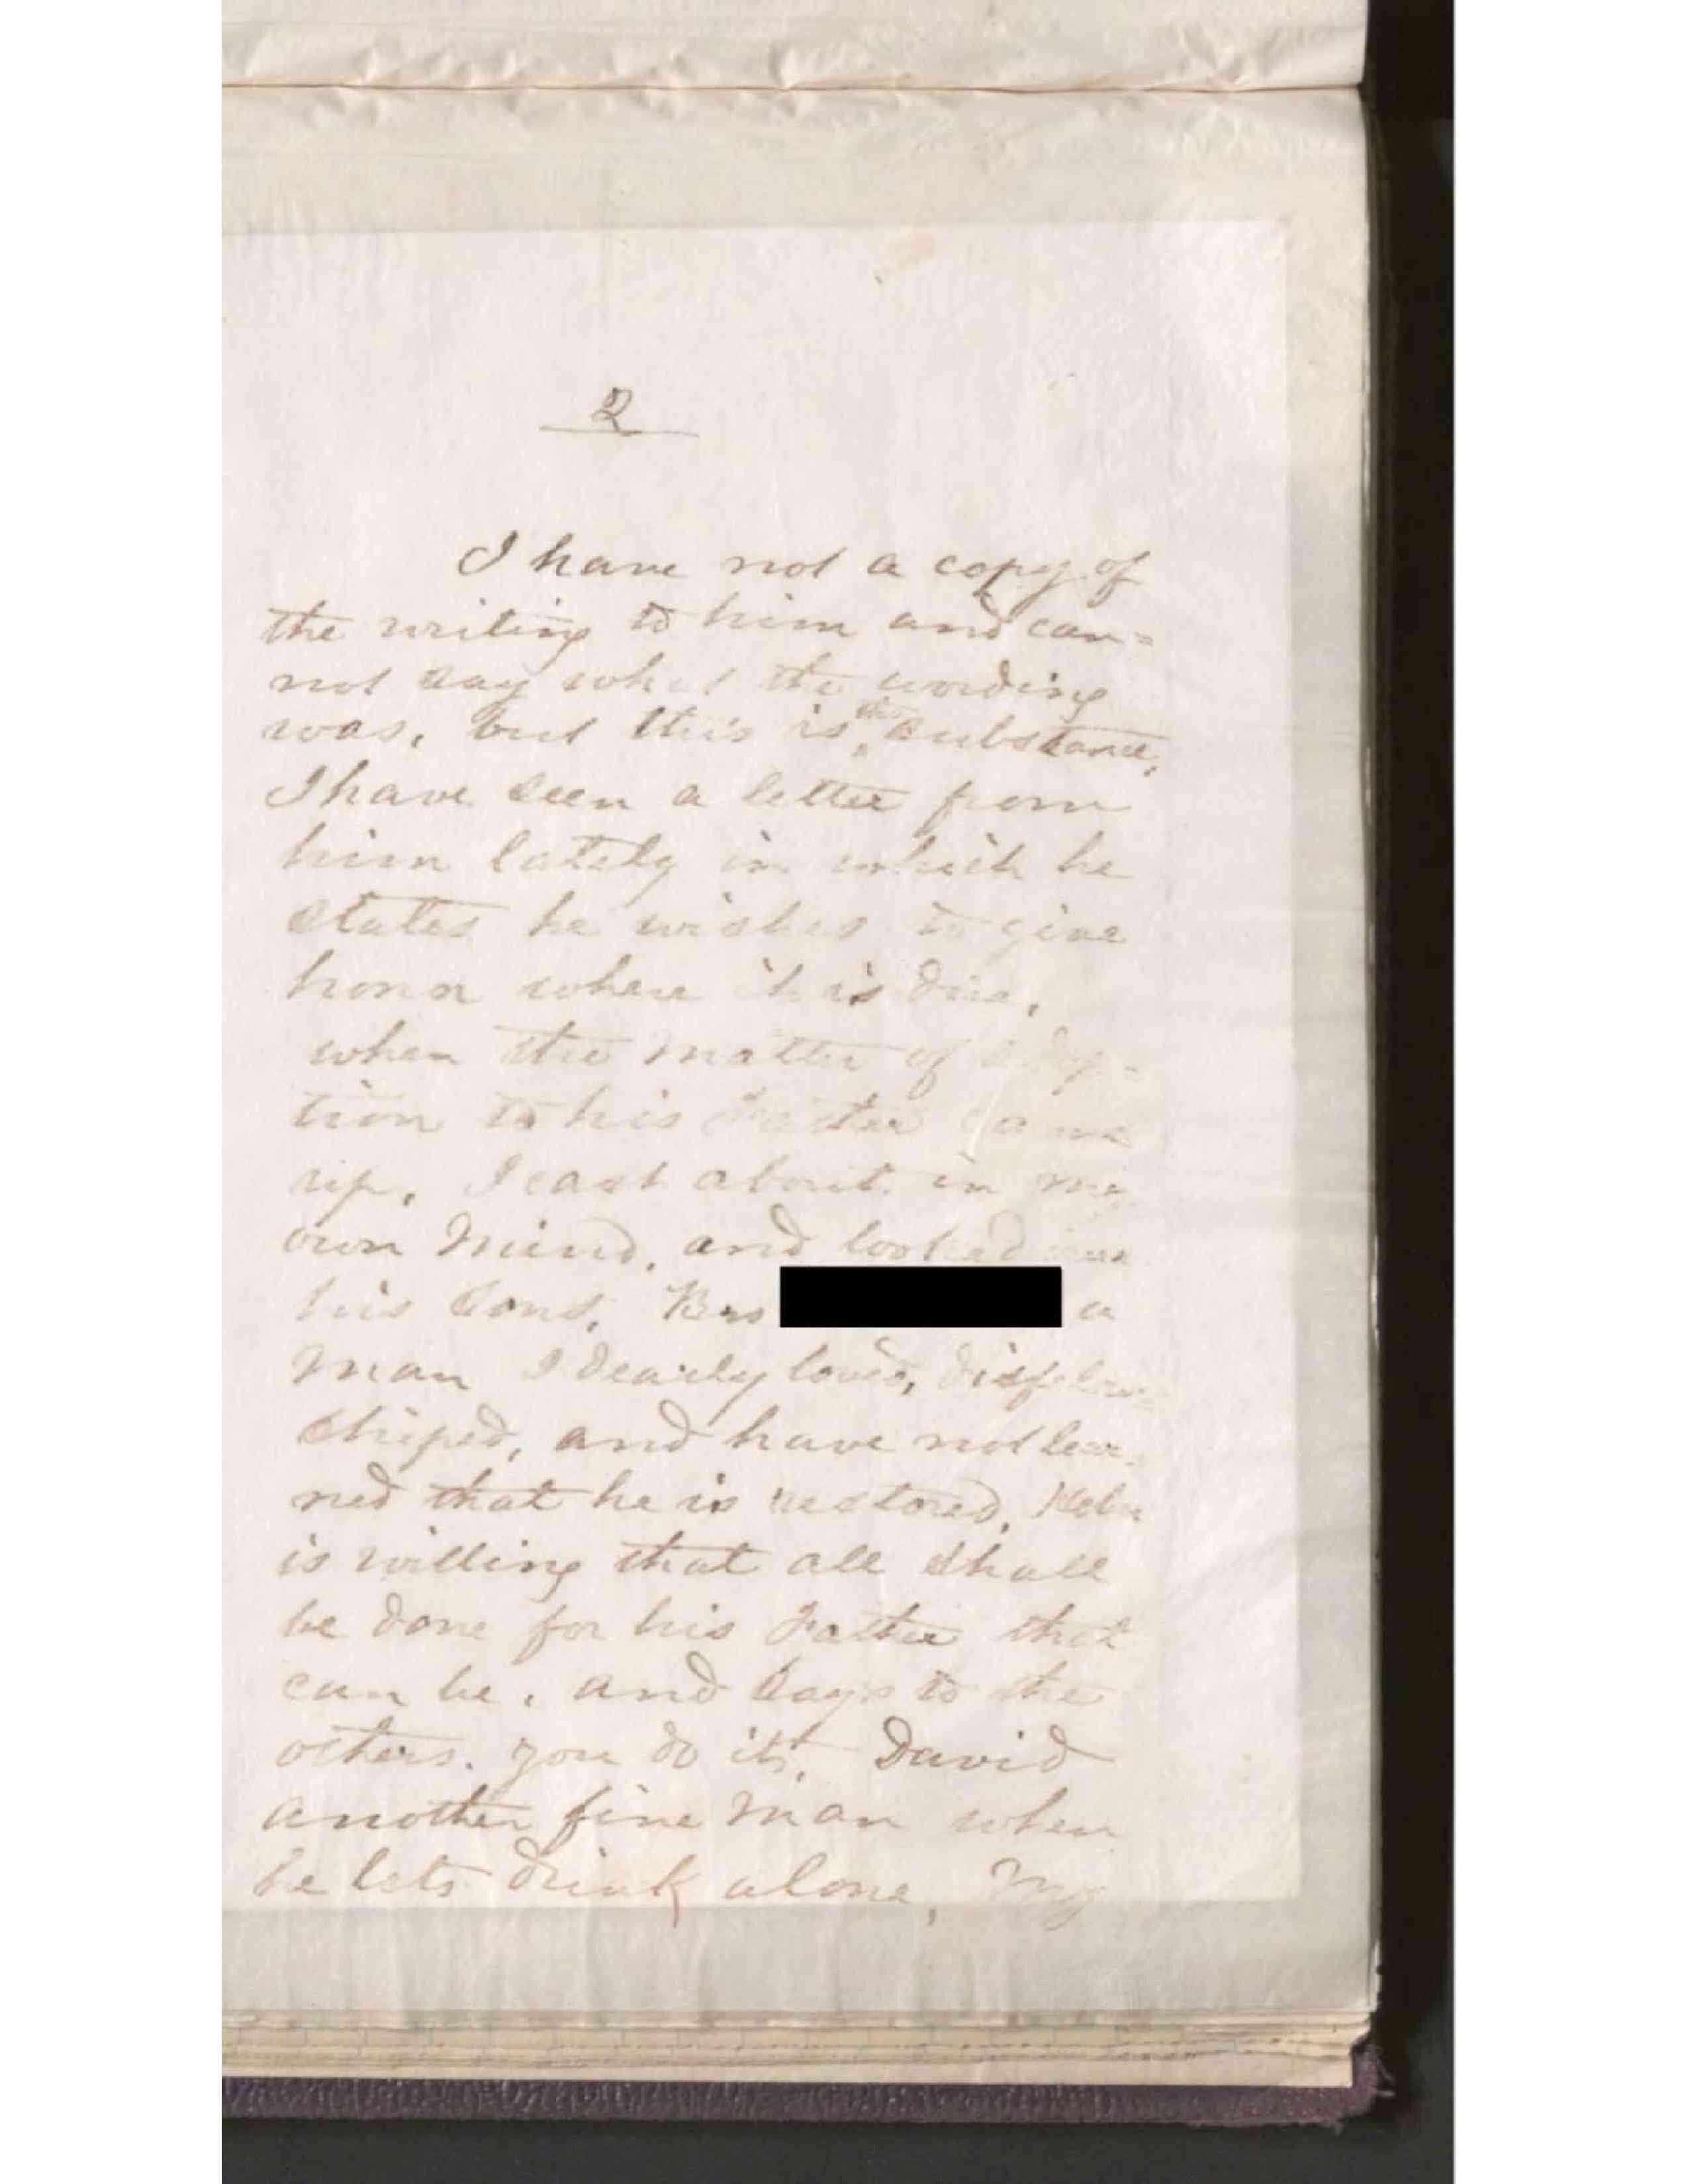 2
I have not a copy of
the writing to him and can=
not say what the wording
was, but this is the substance,
I have seen a letter from
him lately in which he
states he wishes to give
honor where it is due,
when the matter of adop=
tion to his Father came
up, I cast about in my
own mind, and looked
his sons, Bro a
man I dearly loved, disfelow=
shiped, and have not lear=
ned that he is restored, Heber
is willing that all shall
be done for his Father that
can be, and says to the
others. you do it, David
another fine man when
he lets drink alone, My